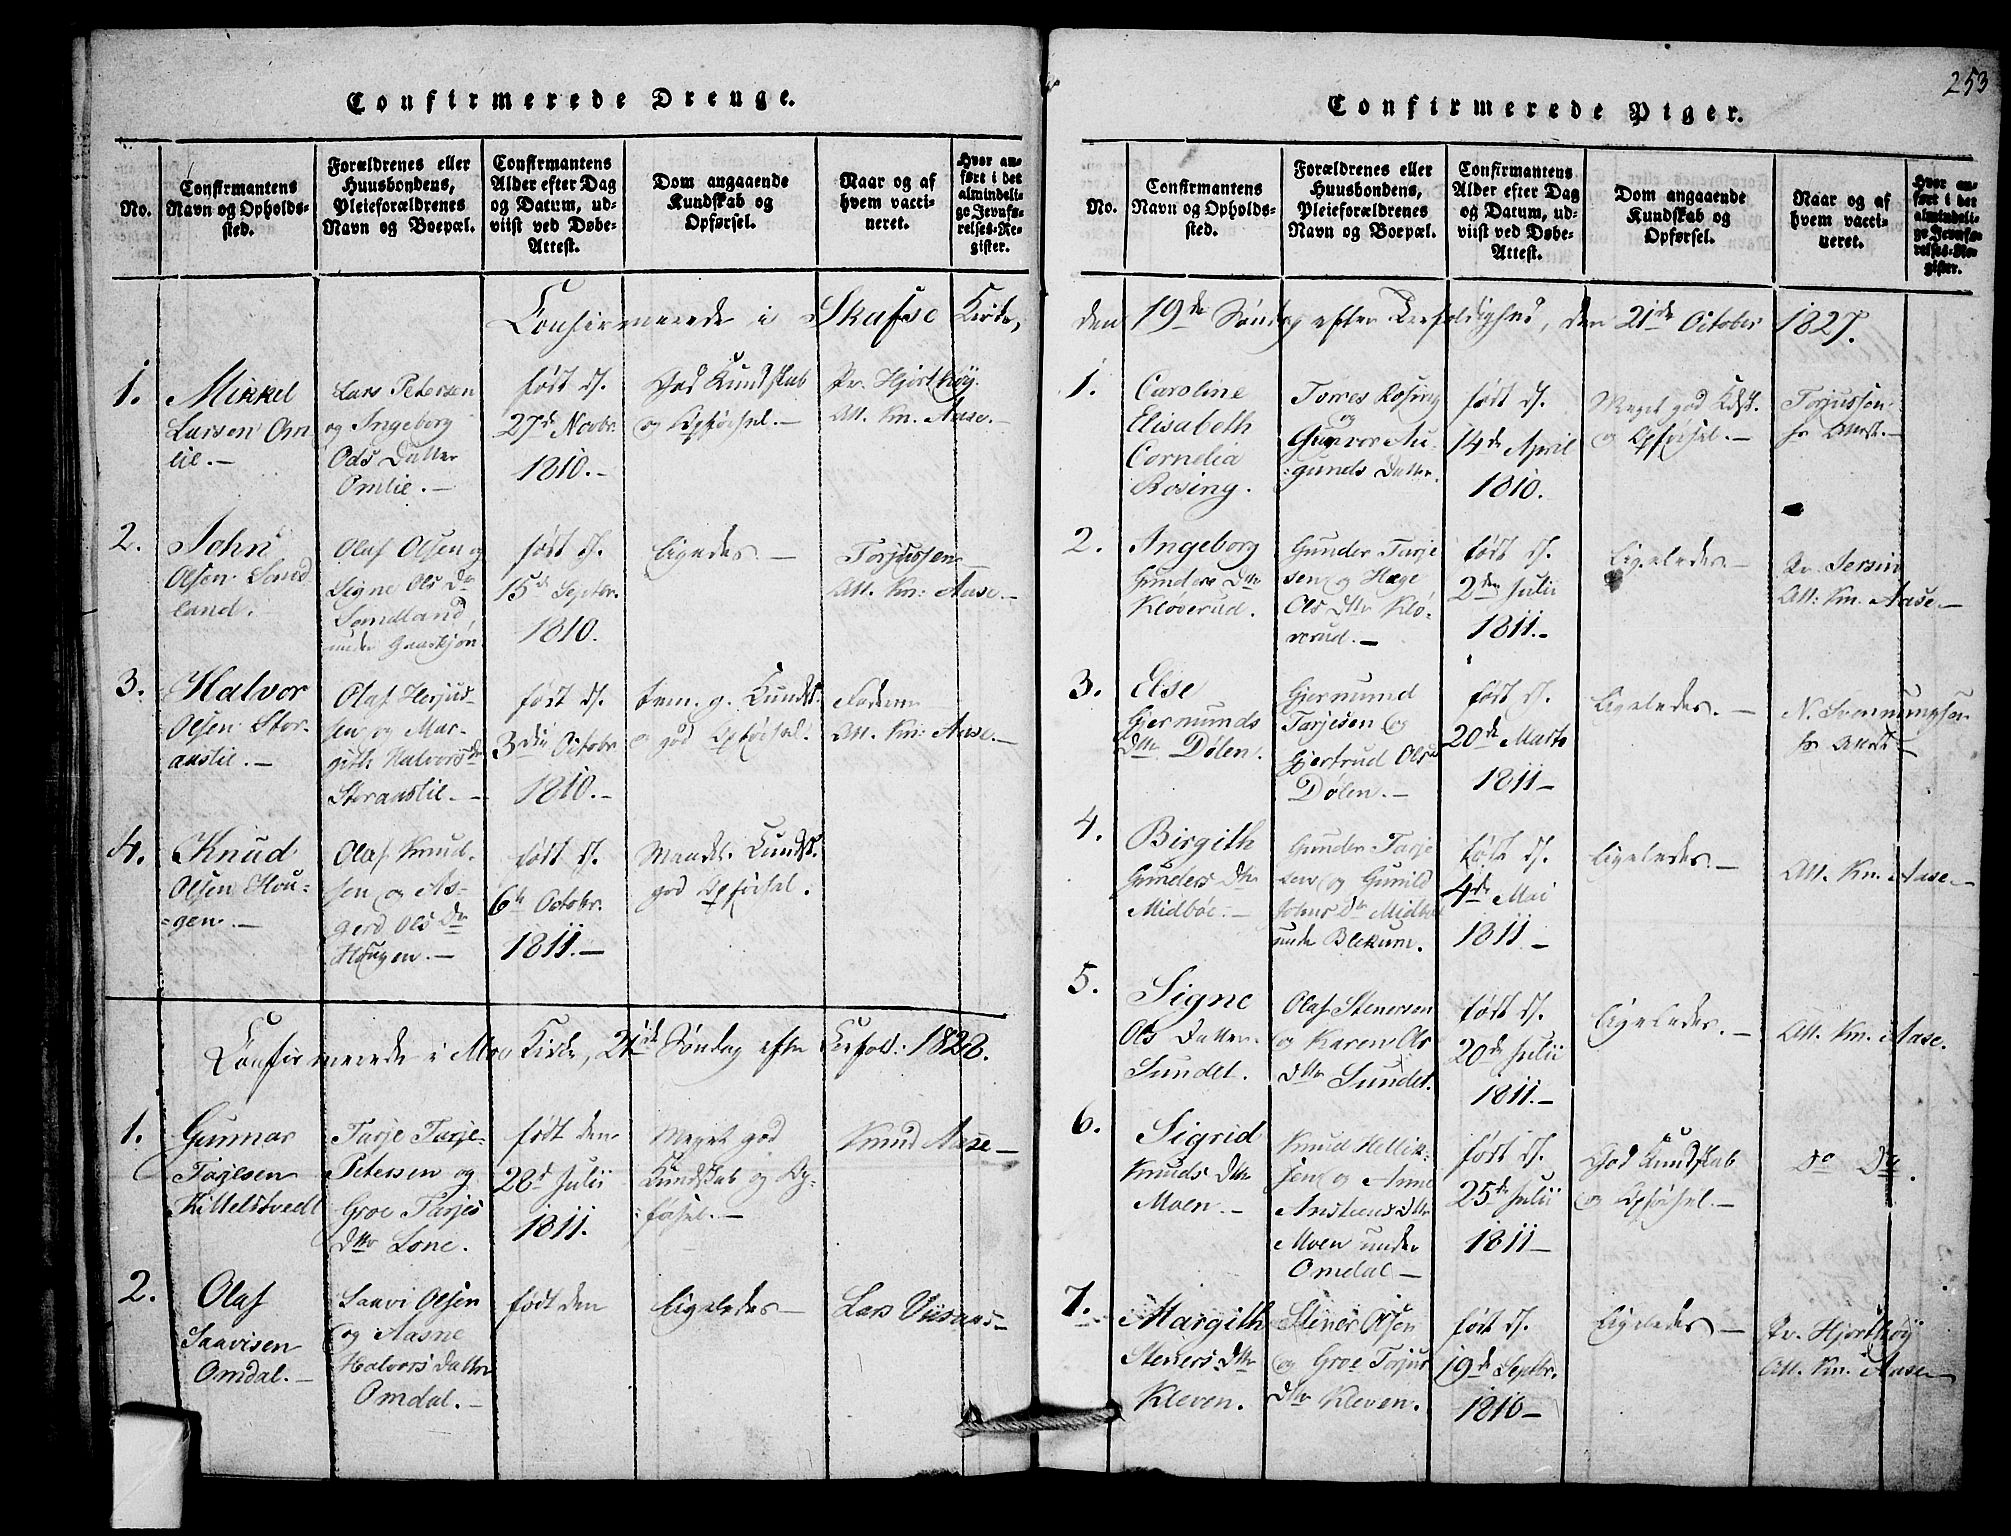 253
Confirmerede Drenge.
No.
Confirmantens
Navn og Opholds-
sted.
Forældrenes eller
Huusbondens,
Pleieforældrenes
Navn og Boepæl.
Confirmantens
Alder efter Dag
og Datum, ud-
viist ved Døbe-
Attest.
Dom angaaende
Kundskab og
Opførsel.
Naar og af
hvem vacci-
neret.
Hvor an-
ført i det
almindeli-
ge Jevnfø-
relses-Re-
gister.
Confirmerede i Skafse Kirke,
1.
Mikkel
Larsen Om
lie.-
Lars Petersen
og Ingeborg
Ols Datter
Omlie.-
født d.
27de Novbr.
1810.-
God Kundskab
og Opførsel.-
Pr. Hjorthøy.
Att. Kn. Aase.-
2.
John
Olsen Sand
land.
Olaf Olsen og
Signe Ols Dr
Sandland,
under
født d.
15de Septbr.
1810.
Ligeledes.-
Torjussen
Att. Kn: Aase.-
3.
Halvor
Olsen Stor-
aaslie.-
Olaf Herjus-
sen og Mar-
gith Halvors Dr
Storaaslie.-
født d.
3die Octobr
1810.-
tem. g. Kundsk.
og god Opførsel.
Att. Kn: Aase.-
4.
Knud
Olsen Hou-
gen.-
Olaf Knud-
sen og As-
gerd Ols Dr
Hougen.-
født d.
6te Octobr.
1811.-
Maadel. Kundsk.
god Opførsel.
Confirmerede i Moe Kirke, 21de Søndag efter Trefold: 1828.
1.
Gunnar
Tarjesen
Kittelstvedt
Tarje Tarje-
Petersen og
Groe Tarjes
Dttr Lone.
født den
28d Julii
1811.
Meget god
Kundskab og Op-
førsel.-
Knud Aase-
2.
Olaf
Saavisen
Omdal.-
Saavi Olsen
og Aasne
Halvors Datter
Omdal.-
født den
Ligeledes-
Lars
Confirmerede Piger.
No.
Confirmantens
Navn og Opholds-
sted.
Forældrenes eller
Huusbondens,
Pleieforældrenes
Navn og Boepæl.
Confirmantens
Alder efter Dag
og Datum, ud-
viist ved Døbe-
Attest.
Dom angaaende
Kundskab og
Opførsel.
Naar og af
hvem vacci-
neret.
Hvor an-
ført i det
almindeli-
ge Jevnfø-
relses-Re-
gister.
den 19de Søndag efter Trefoldighed, den 21de October 1827.
1.
Caroline
Elisabeth
Cornelia
Rosing.
Torres Rosing
og
Gunvor Au-
gunds Datter.
født d.
14de April
1810.
Meget god Kdsk.
og Opførsel.-
Torjussen
2.
Ingeborg
Gunders Dttr
Kløverud.
Gunder Tarje
sen og Hæge
Ols Dttr Klø-
verud.-
født d.
2den Julii
1811.-
Ligeledes-
Att: Kn. Aase-
3.
Else
Gjermunds
Dttr Dølen.
Gjermund
Tarjesen og
Gjertrud Ols
Dølen.-
født d.
20de Marts
1811-
Ligeledes.-
4.
Birgith
Gunders Dttr
Midbøe.-
Gunder Tarje
sen og Gunild
Johns Dr Midbøe
under Blekum.
født d.
4de Mai
1811-
Ligeledes.-
Att. Kn. Aase-
5.
Signe
Ols Datter
Sundet.
Olaf Stenersen
og Karen Ols
Dttr Sundet.
født d.
20de Julii
1811.-
Ligeledes.-
Att. Kn. Aase.
6.
Sigrid
Knuds Dttr
Moen.-
Knud Hellik-
sen og Anne
Dttr
Moen under
Omdal-
født d.
25de Julii
1811-
God Kundskab
og Opførsel.-
Do Do.
7.
Margith
Steners Dttr
Kleven.
Stener Olsen
og Groe Torjus
Dttr Kleven.
født d.
19de Septbr.
1810-
Ligeledes-
Pr. Hjorthøy
Att. Kn. Aase-